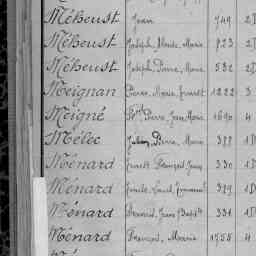 Méheust Jean 749 2D
Méheust Joseph, Marie 723 2D
Méheust Joseph, Pierre, Marie 532 2D
Meignan Pierre, Marie, Ernest 1222 3
Meigné Pierre, Jean Marie 1690 4
Mélec Julien, Pierre, Marie 377 1D
Ménard Ernest, François, Jean 330 1D
Ménard Emile, Louis, Emmanuel 379 1D
Ménard Jean Baptte 331 1D
Ménard François, Marie 1755 4